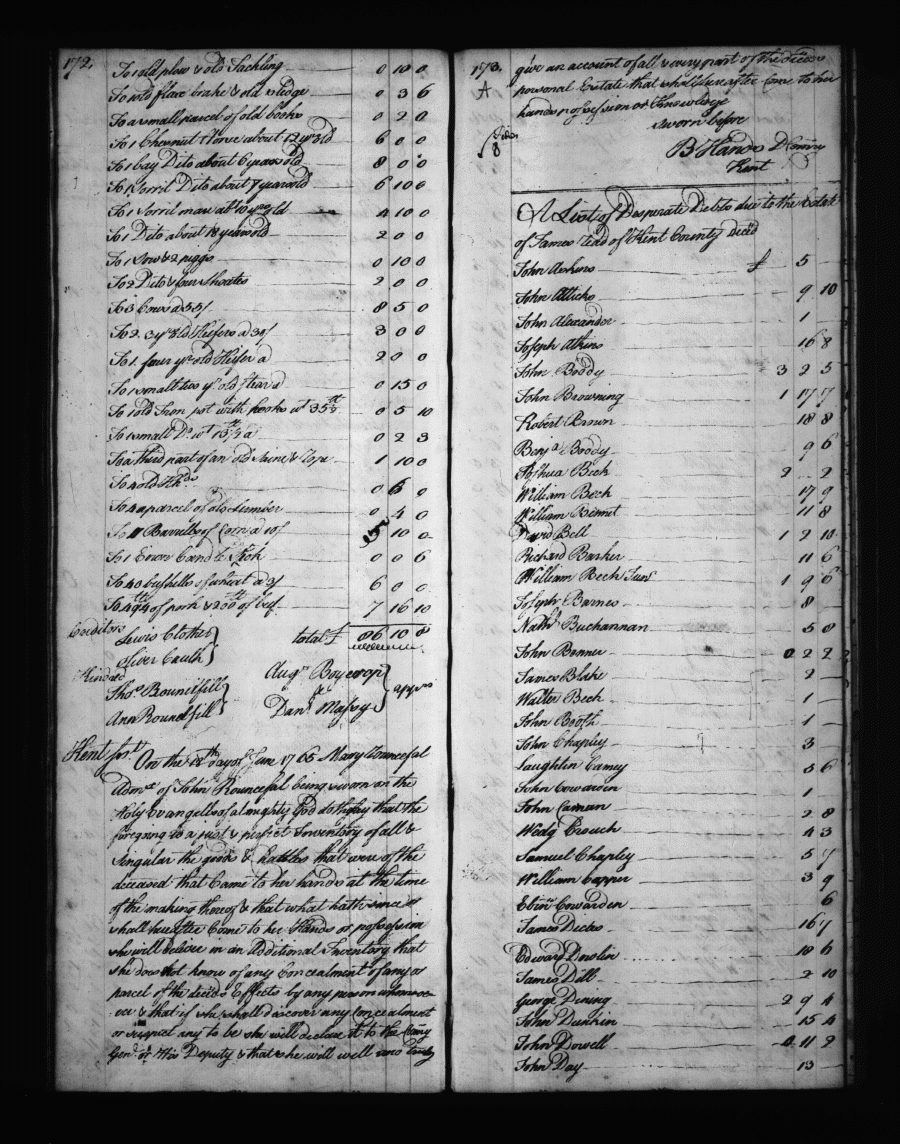 172.
To 1 old plow & old Tackling 0 10 0
To old flax brake & old sledge 0 3 6
To a small parcel of old books 0 2 0
To 1 Chesnut Horse about 12 yrs old 6 0 0
To 1 bay Dito about 6 years old 8 0 0
To 1 Sorril Dito about 7 years old 6 10 0
To 1 Sorril mare abt 10 yrs old 4 10 0
To 1 Dito about 18 years old 2 0 0
To 1 Sow & 2 piggs 0 10 0
To 2 Dito & four Shoates 2 0 0
To 3 Cows a 55/ 8 5 0
To 2. 3 yr old Heifers a 30/ 3 0 0
To 1. four yr old Heifer a 2 0 0
To 1 small two yr old stear a 0 15 0
To 1 old Iron pot with hooks wt 35 0 5 10
To 1 small Do wt 13 1/2 a 0 2 3
To a third part of an old seine & rope 1 10 0
To 4 old Hhds 0 6 0
To a parcel of old Lumber 0 4 0
To 11 Barrells of Corn a 10/ 5 10 0
To 1 0 0 6
To 40 bushells of wheat a 3/ 6 0 0
To 494 lb of pork & 200 lb of beef 7 16 10
Creditors
Lewis Clother total £ 86 10 8
Oliver Caulk
Kindred
Augn Boyerop
Thos Rouncifill
Danl Massy apprs
Ann Rouncifill
Kent Sct. On the day of June 1765 Mary Rouncefal
Admx of John Rouncefal being sworn on the
Holy Evangells of almighty God doth say that the
foregoing is a just & perfect Inventory of all &
singular the goods & Chattles that were of the
deceased that Came to her hands at the time
of the making thereof & that what hath since or
shall hereafter Come to her Hands or possession
she will deliver in an additional Inventory that
she does not know of any Concealment of any or
parcel of the deceds Effects by any person whomsoe
ver & that if she shall discover any Concealment
or suspect any to be she will declare it to the Comy
Genl or His Deputy & that she will well and truly
173.
give an account of all & every part of the deceds
personal Estate that shall hereafter Come to her
hands possession or knowledge
Sworn before
B Hands D Comry
Kent
A
8
A List of Desperate Debts due to the Estate
of James Tead of Kent County Deced
John Askins £ 5
John Atticks 9 10
John Alexander 1
Joseph Atkins 16 8
John Boddy 3 2 5
John Browning 1 17 7
Robert Brown 18 8
Benja Boddy 9 6
Joshua Beck 2 2
William Beck 17 9
William Bennet 11 8
David Bell 1 2 10
Richard Barker 11 6
William Beck Junr 1 9 6
Joseph Barnes 8
Nathl Buchannan 5 8
John Bonner 2 2
James Blake 2
Walter Beck 1
John Booth 1
John Chapley 3
Laughlin Camey 3 6
John Cowarden 1
John Caman 2 8
Wedg Crouch 4 3
Samuel Chapley 5 7
William Capper 3 9
Ebinr Cowarden 6
James Dicks 16 7
Edward Dowlin 18 6
James Dill 2 10
George Dining 2 9 4
John Dunkin 15 4
John Dowell 4 11 2
John Day 13